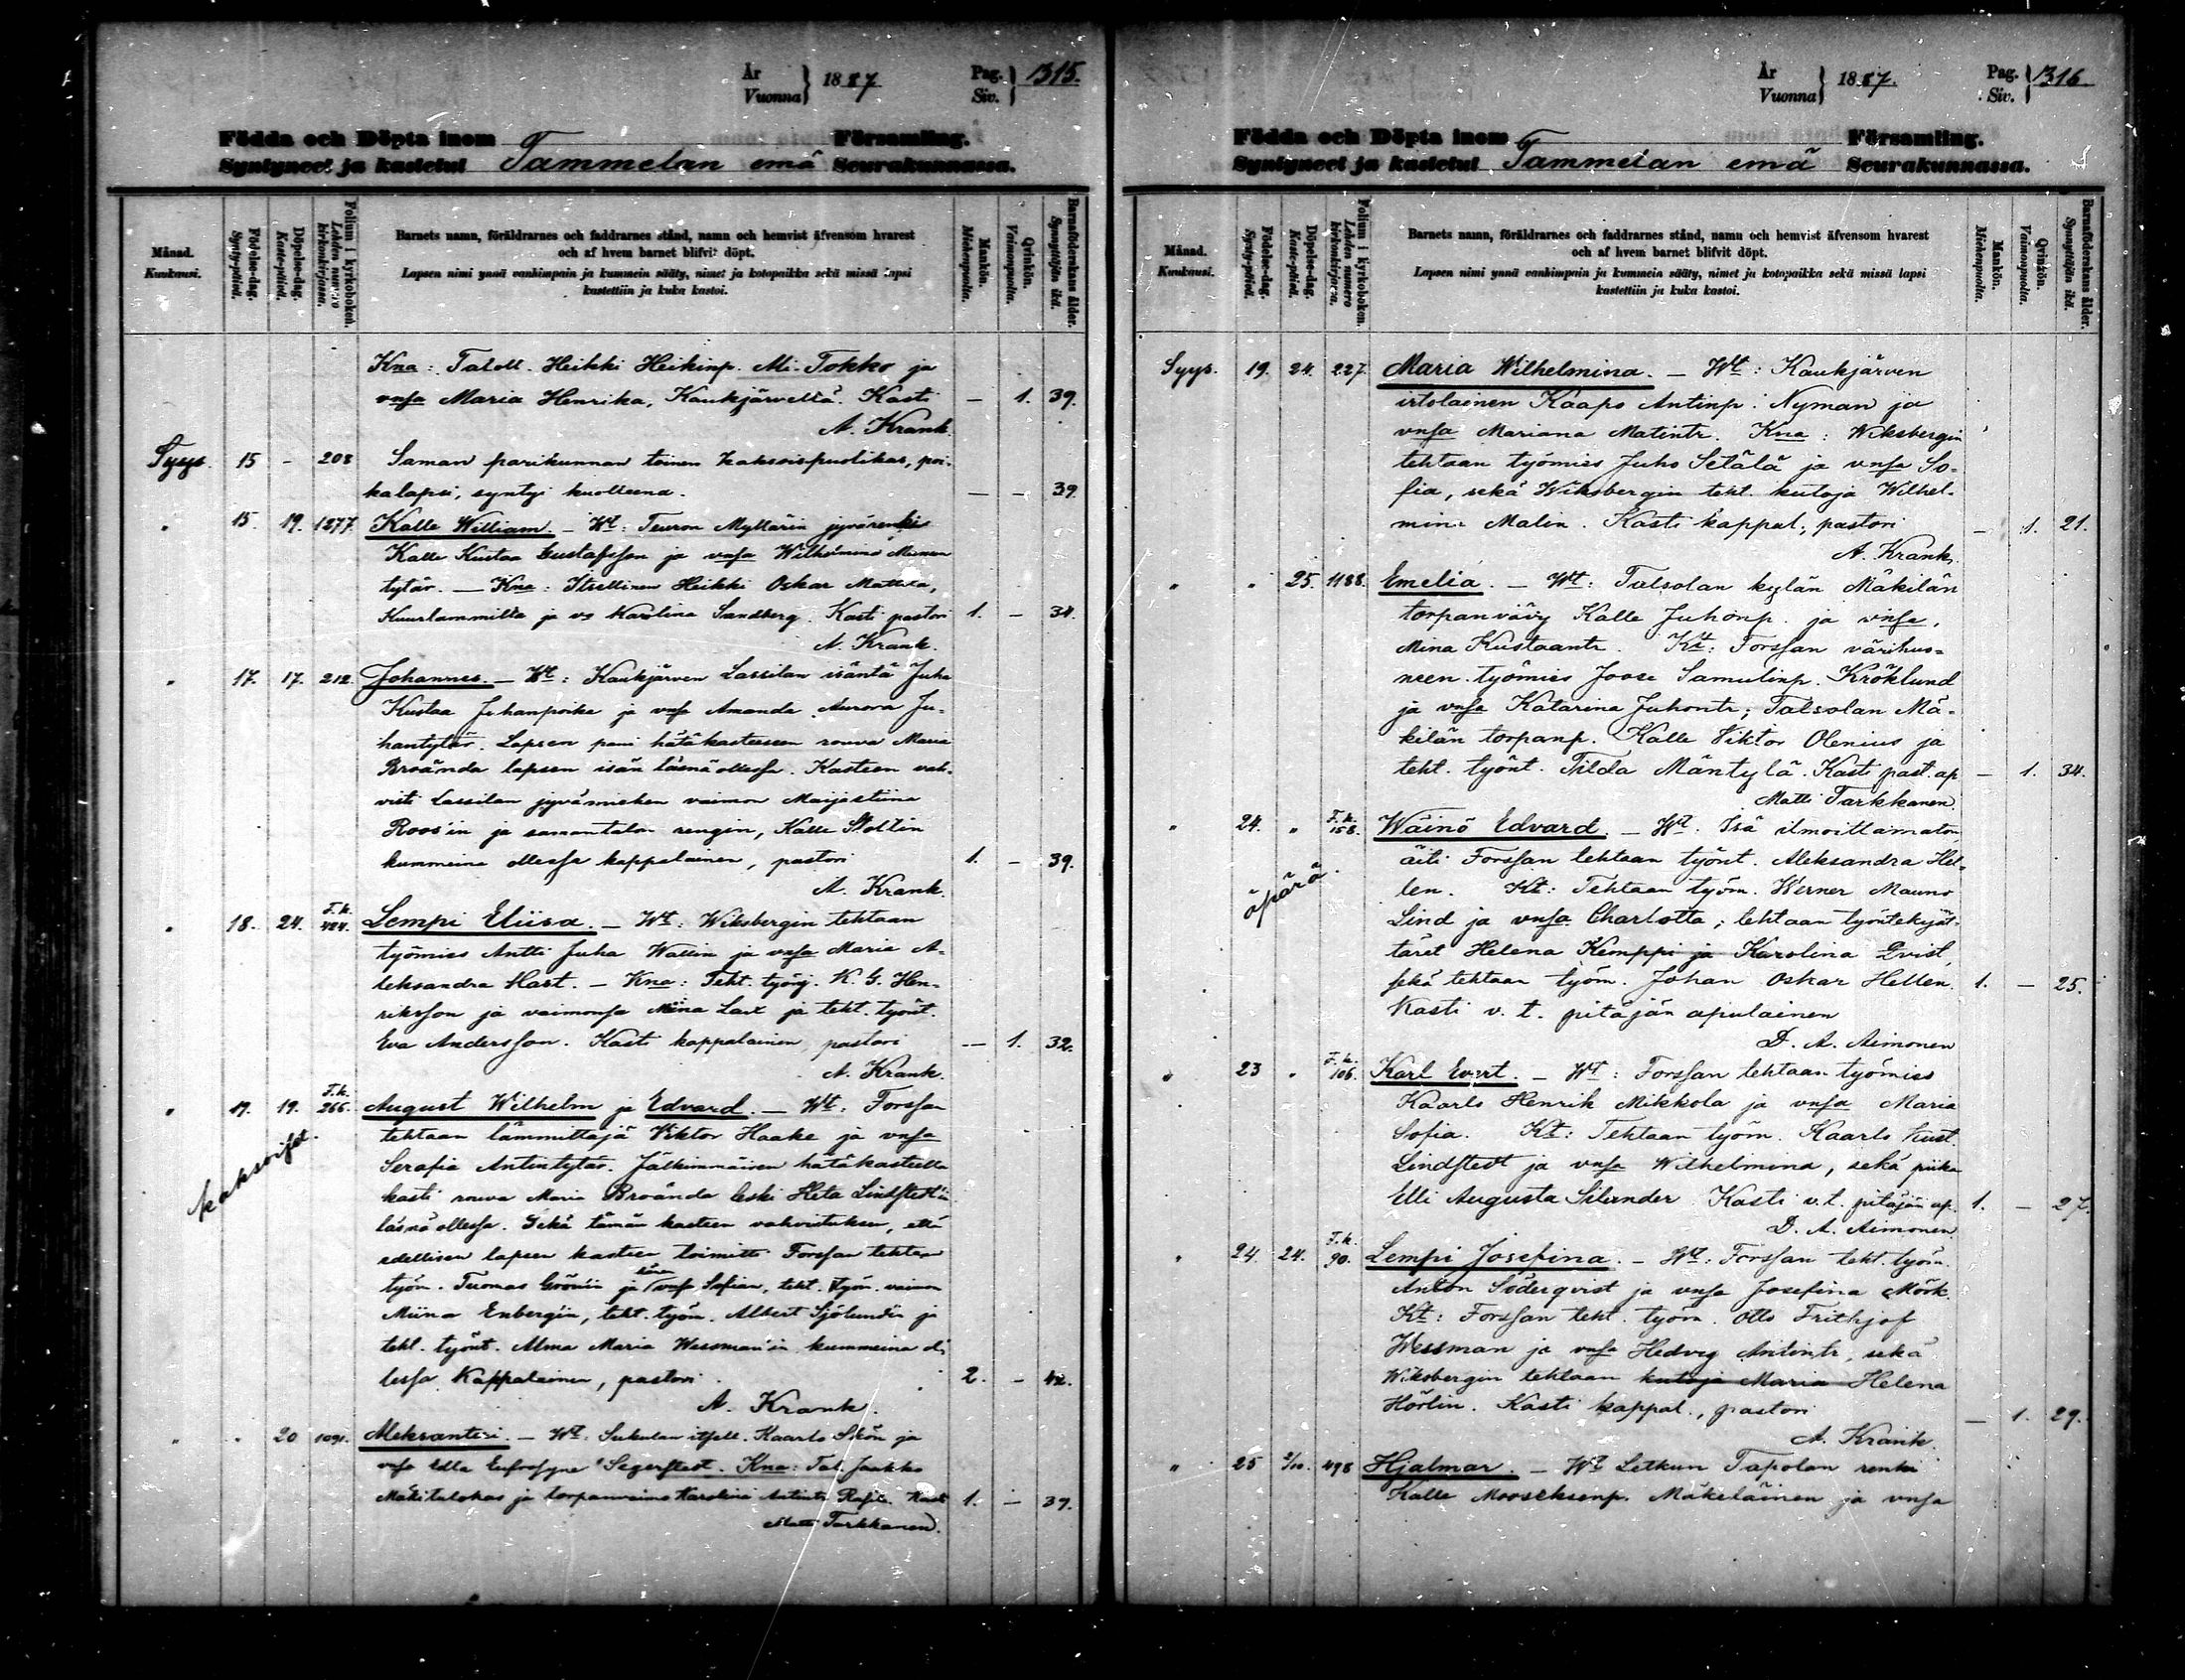 År
Vuonna } 1887
Pag.
Siv. } 1315.
Födda och Döpta inom Församling.
Syntyneet ja kastetut Tammelan emä Seurakunnassa.
Månad.
Kuukausi.
Födelse-dag.
Synty-päivä.
Döpelse-dag.
Kaste-päivä.
Folium i kyrkoboken.
Lehden numero kirkonkirjassa.
Barnets namn, föräldrarnes och faddrarnes stånd, namn och hemvist äfvensom hvarest
och af hvem barnet blifvit döpt.
Lapsen nimi ynnä vanhimpain ja kummein sääty, nimet ja kotopaikka sekä missä lapsi
kastettiin ja kuka kastoi.
Mankön.
Miehenpuolta.
Qvinkön.
Vaimonpuolta.
Barnaföderskans ålder.
Synnyttäjän ikä.
Kna: Taloll. Heikki Heikinp. Ali-Tokko ja
vnsa Maria Henrika, Kaukjärveltä. Kasti — 1. 39.
A. Krank.
Syys. 15 - 208 Saman parikunnan toinen kaksoispuolikas, poi-
kalapsi, syntyi kuolleena. — — 39.
" 15. 19. 1277 Kalle William. — Wt: Teuron Myllärin jyvärenki
Kalle Kustaa Gustafsson ja vnsa Wilhelmina
tytär. — Kna: Itsellinen Heikki Oskar Mattila,
Kuuslammilta ja vo Karolina Sandberg. Kasti pastori 1. — 34.
A. Krank.
" 17. 17. 212. Johannes. — Wt: Kaukjärven Lassilan isäntä Juha
Kustaa Juhanpoika ja vnsa Amanda Aurora Ju-
hantytär. Lapsen pani hätäkasteeseen rouva Maria
Broända lapsen isän läsnäollessa. Kasteen vah-
visti Lassilan jyvämiehen vaimon Maijastiina
Roos'in ja samantalon rengin, Kalle Stoltin
kummeina ollessa kappalainen, pastori 1. — 39.
A. Krank.
" 18. 24. F.k. 424. Lempi Eliisa. — Wt: Wiksbergin tehtaan
työmies Antti Juha Wallin ja vnsa Maria A-
leksandra Hart. — Kna: Teht. työnj. K. G. Hen-
riksson ja vaimonsa Miina Lax ja teht. työnt.
Eva Andersson. Kasti kappalainen, pastori — 1. 32.
A. Krank.
" 19. 19. F.k. 266. August Wilhelm ja Edvard. — Wt: Forssan
kaksoiset.
tehtaan lämmittäjä Viktor Haake ja vnsa
Serafia Antintytär. Jälkimmäisen hätäkasteella
kasti rouva Maria Broända leski Heta Lindstedt'in
läsnäollessa. Sekä tämän kasteen vahvistuksen, että
edellisen lapsen kasteen toimitti Forssan tehtaan
työm. Tuomas Gröönin ja vnsa Sofian, teht. työm. vaimon
Miina Enbergin, teht. työm. Albert Sjölundin ja
teht. työnt. Alma Maria Wessman'in kummeina ol-
lessa Kappalainen, pastori. 2. — 42.
A. Krank.
" " 20 1091. Aleksanteri. — Wt: Sukulan itsell. Kaarlo Skön ja
vnsa Edla Eufrosyne Segerstedt. Kna: Tal. Jaakko
Mäkitalokas ja torpanvaimo Karolina Antintr. Kasti 1. — 37.
Matti Tarkkanen.
År
Vuonna } 1887.
Pag.
Siv. } 1316.
Födda och Döpta inom Församling.
Syntyneet ja kastetut Tammelan emä Seurakunnassa.
Månad.
Kuukausi.
Födelse-dag.
Synty-päivä.
Döpelse-dag.
Kaste-päivä.
Folium i kyrkoboken.
Lehden numero kirkonkirjassa.
Barnets namn, föräldrarnes och faddrarnes stånd, namn och hemvist äfvensom hvarest
och af hvem barnet blifvit döpt.
Lapsen nimi ynnä vanhimpain ja kummein sääty, nimet ja kotopaikka sekä missä lapsi
kastettiin ja kuka kastoi.
Mankön.
Miehenpuolta.
Qvinkön.
Vaimonpuolta.
Barnaföderskans ålder.
Synnyttäjän ikä.
Syys. 19. 24. 227. Maria Wilhelmina. — Wt: Kaukjärven
irtolainen Kaapo Antinp. Nyman ja
vnsa Mariana Matintr. Kna: Wiksbergin
tehtaan työmies Juho Setälä ja vnsa So-
fia, sekä Wiksbergin teht. kutoja Wilhel-
mina Malin. Kasti kappal., pastori — 1. 21.
A. Krank.
" " 25. 1188. Emelia. — Wt: Talsolan kylän Mäkilän
torpanvävy Kalle Juhonp. ja vnsa,
Mina Kustaantr. Kt: Forssan värihuo-
neen työmies Joose Samulinp. Kröklund
ja vnsa Katarina Juhontr; Talsolan Mä-
kilän torpanp. Kalle Viktor Olenius ja
teht. työnt. Tilda Mäntylä. Kasti past. ap — 1. 34.
Matti Tarkkanen.
" 24. " F.k. 158. Wäinö Edvard. — Wt: Isä ilmoittamaton,
äpärä.
äiti Forssan tehtaan työnt. Aleksandra Hel-
len. Kt: Tehtaan työm. Werner Mauno
Lind ja vnsa Charlotta; tehtaan työntekijät-
täret Helena Kemppi ja Karolina Qvist,
sekä tehtaan työm. Johan Oskar Hellen. 1. — 25.
Kasti v. t. pitäjän apulainen
D. A. Aimonen
" 23 " F.k. 106. Karl Evert. — Wt: Forssan tehtaan työmies
Kaarlo Henrik Mikkola ja vnsa Maria
Sofia. Kt: Tehtaan työm. Kaarlo Kust.
Lindstedt ja vnsa Wilhelmina, sekä piika
Elli Augusta Silander. Kasti v.t. pitäjän ap. 1. — 27.
D. A. Aimonen
" 24. 24. F.k. 90. Lempi Josefina. — Wt: Forssan teht. työm.
Anton Söderqvist ja vnsa Josefina Mörk.
Kt: Forssan teht. työm. Otto Frithjof
Wessman ja vnsa Hedvig Antintr, sekä
Wiksbergin tehtaan kutoja Maria Helena
Hörlin. Kasti kappal., pastori — 1. 29.
A. Krank.
" 25 2/10. 498 Hjalmar. — Wt Letkun Tapolan renki
Kalle Mooseksenp. Mäkeläinen ja vnsa